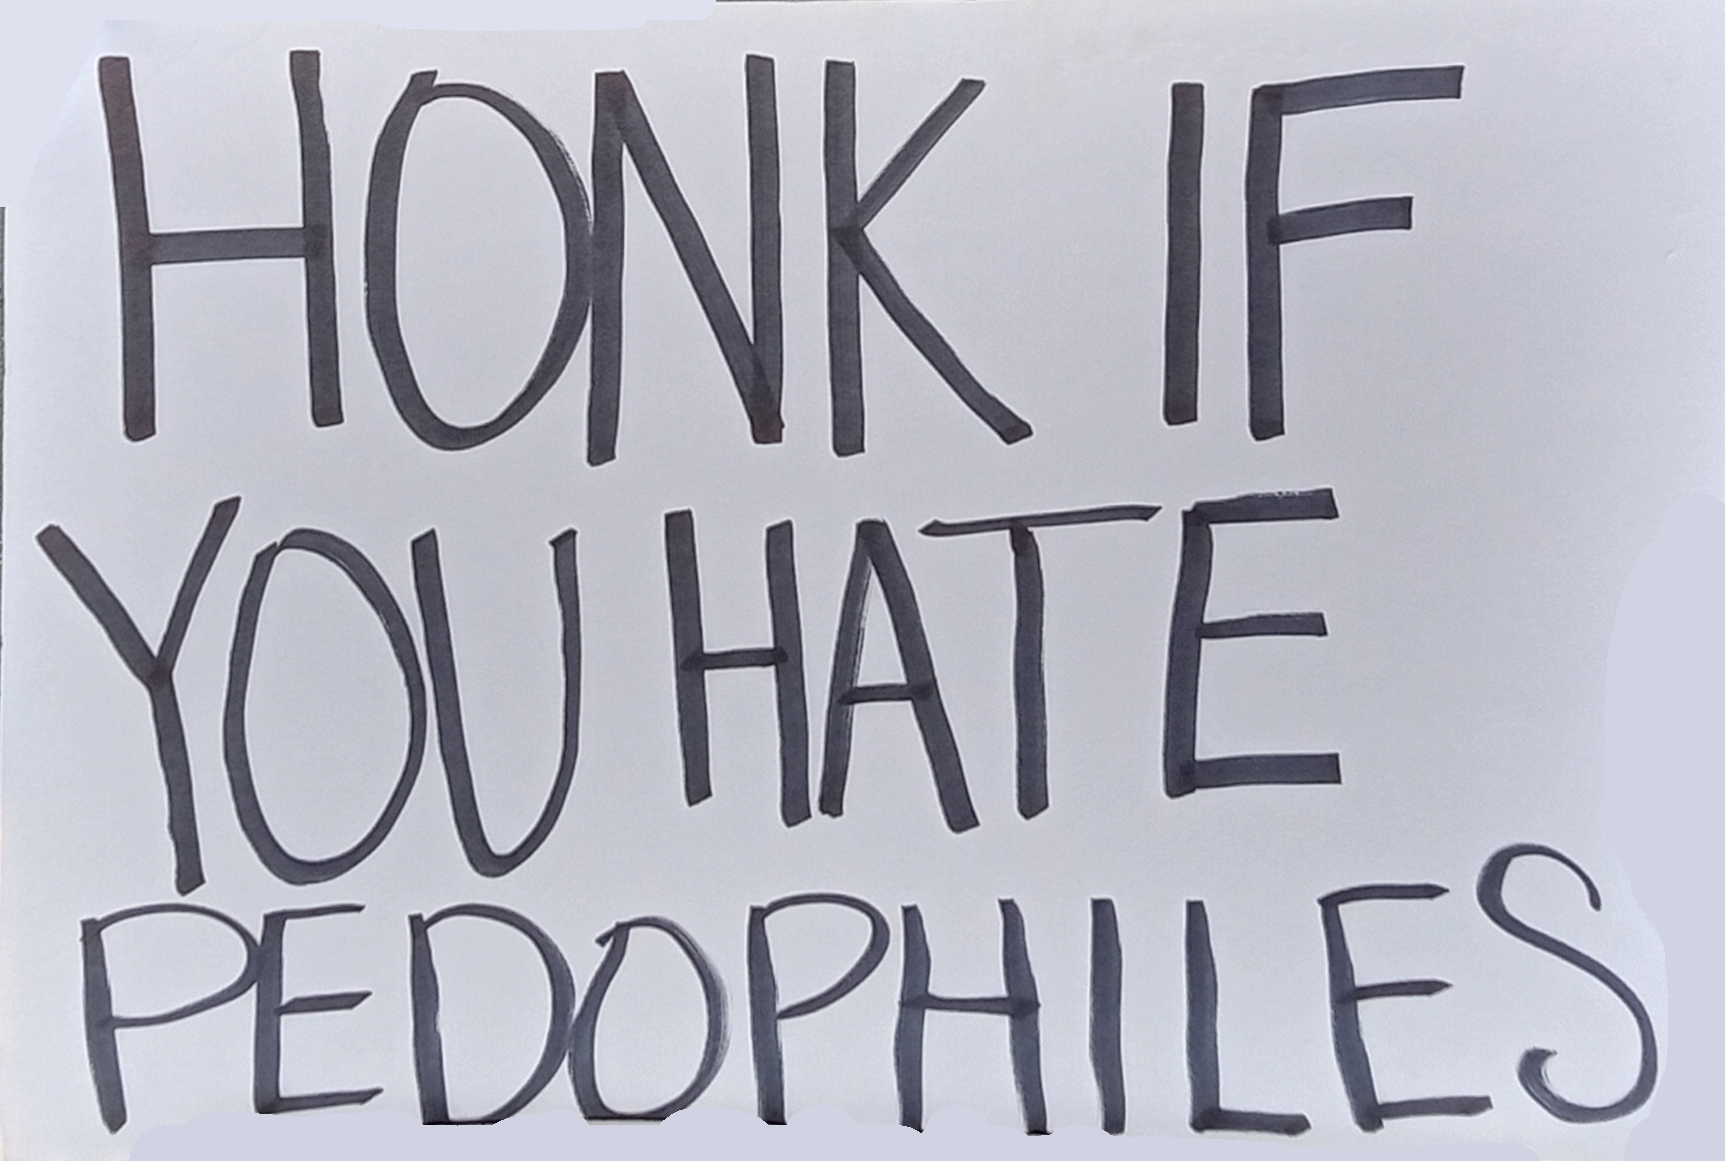 HONK IF
YOU HATE
PEDOPHILES